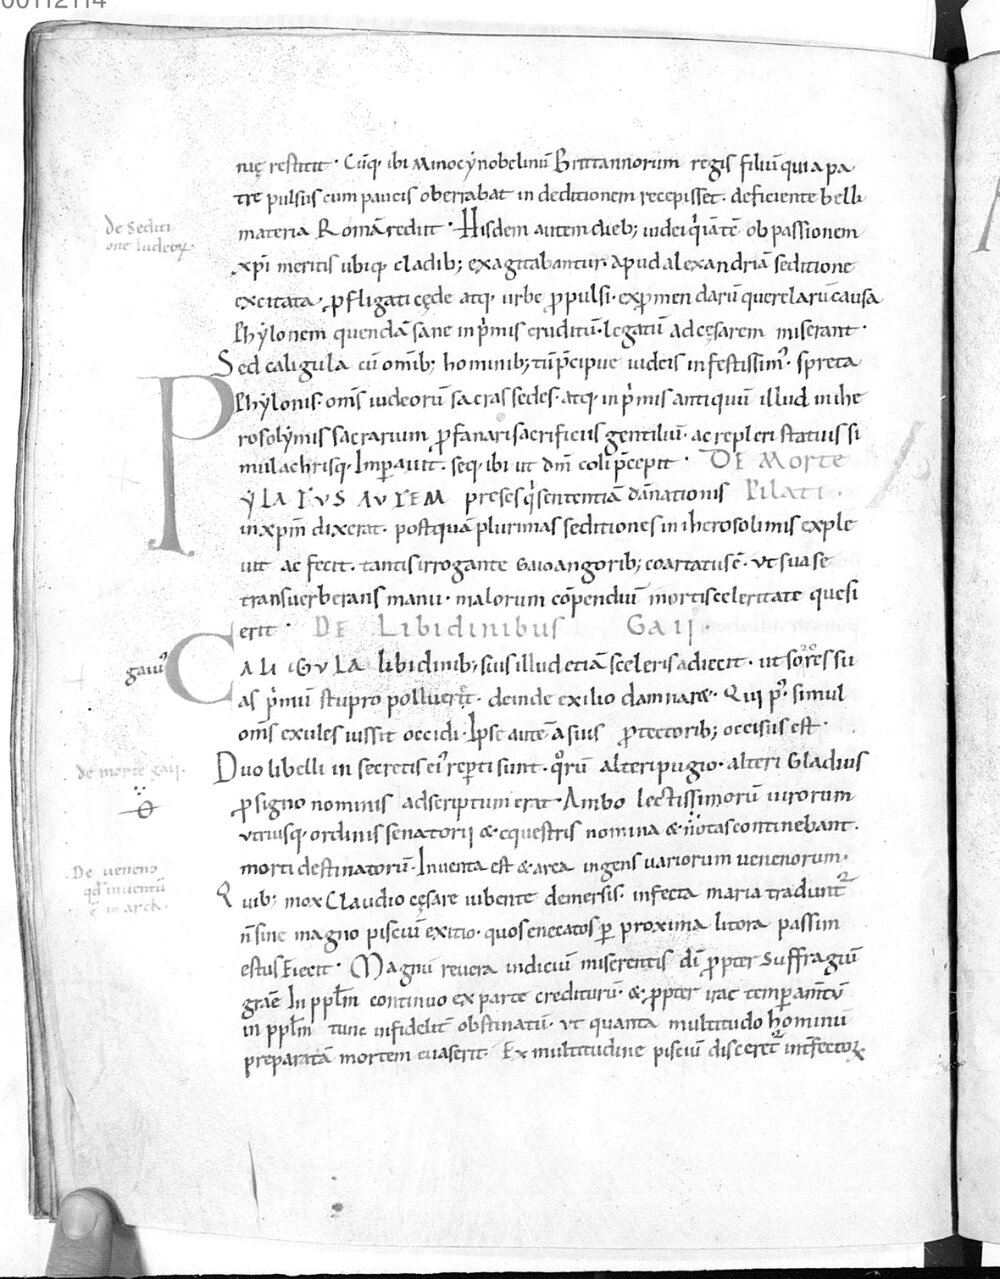 00112114
nię restitit · Cūq· ibi Minocẏnobelinū Brittannorum regis filiū qui a pa
tre pulsus cum paucis oberrabat in deditionem recepisset · deficiente belli
materia Romā rediit · Hisdem autem dieb; iudei q̇ iā tē ob passionem
de sediti
one Iudeoꝝ·
xp̄i meritis ubiq· cladib; exagitabantur· apud alexandriā seditione
excitata · ꝓfligati cęde atq· urbe ꝓpulsi· exp̄mendarū querelarū causa
Phẏlonem quendā sane in p̄mis eruditū· legatū ad cęsarem miserant ·
Sed caligula cū om̄ib; hominib; tū p̄cipue iudeis infestissim᾽· spreta
Phẏlonis· om̄s iudeorū sacras sedes· atq· in p̄mis antiquū illud in ihe
rosolẏmis sacrarium ꝓfanari sacrificiis gentiliū· ac repleri statuis si
mulachrisq· Imꝑauit· seq· ibi ut dm̄ coli p̄cepit · DE Morte
PẏLATUS AUTEM preses q̇ sententiā dānationis Pilati ·
in xp̄m dixerat· postquā plurimas seditiones in iherosolimis exple
uit ac fecit· tantis irrogante Gaio angorib; coartatus ē· ut sua se
transuerberans manu· malorum cōpendiū mortis celeritate quesi
erit · DE Libidinibus Gaij·
gaiu᾽
CALIGULA libidinib; suis illud etiā sceleris adiecit· ut sorores su
as p̄mū stupro pollueret· deinde exilio damnaret· Qui p᾽ simul
om̄s exules iussit occidi· Ipse autē a suis ꝓtectorib; occisus est·
Duo libelli in secretis ei᾽ reꝑti sunt· qorū alteri pugio· alteri Gladius
de morte gaii·
ꝓ signo nominis adscriptum erat· Ambo lectissimorū uirorum
utriusq· ordinis senatorij & equestris nomina & notas continebant·
morti destinatorū· Inuenta est & arca ingens uariorum uenenorum·
De ueneno
qd̄ inuentū
ē in arca·
Quib; mox Claudio cęsare iubente demersis· infecta maria traduntur
n̄ sine magno pisciū exitio· quos enecatos ꝑ proxima litora passim
estus Eiecit · Magnū reuera indiciū miserentis di̅ ꝓpter suffragiū
gratiē In pplm̄ continuo ex parte crediturū· & ꝓpter irae temꝑam̄tū
in pplm̄ tunc infidelit̄ obstinatū· ut quanta multitudo hominū
preparatā mortem euaserit· Ex multitudine pisciū disceretur infectoꝝ